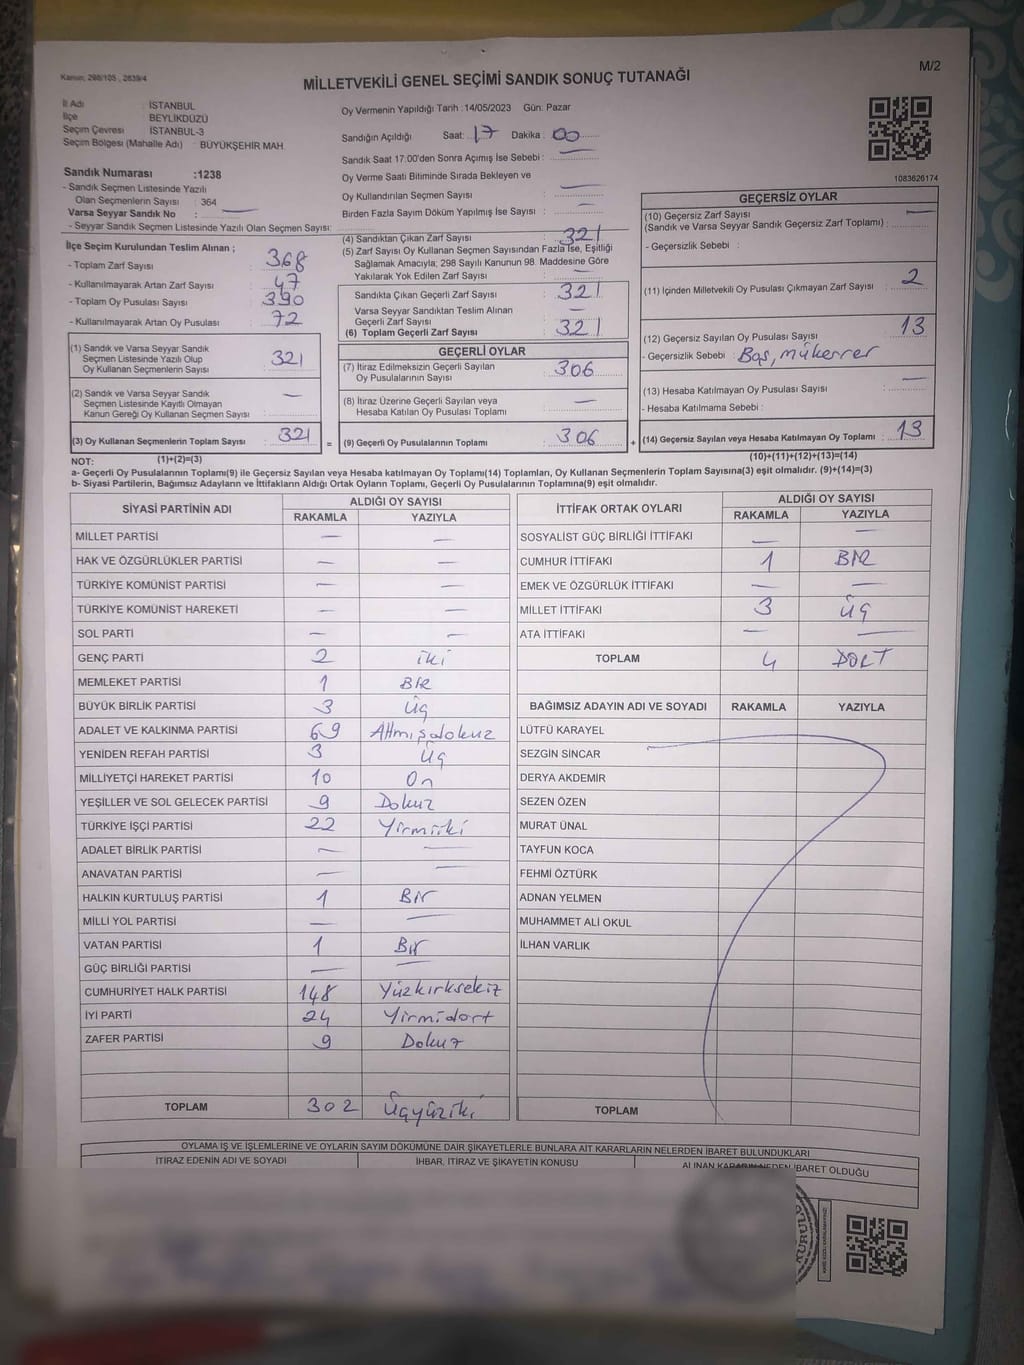 M/2
Kanun; 298/105 , 2839/4
MİLLETVEKİLİ GENEL SEÇİMİ SANDIK SONUÇ TUTANAĞI
İl Adı : İSTANBUL
İlçe : BEYLİKDÜZÜ
Seçim Çevresi : İSTANBUL-3
Seçim Bölgesi (Mahalle Adı) : BÜYÜKŞEHİR MAH.
Sandık Numarası :1238
- Sandık Seçmen Listesinde Yazılı
Olan Seçmenlerin Sayısı : 364
Varsa Seyyar Sandık No : —
- Seyyar Sandık Seçmen Listesinde Yazılı Olan Seçmen Sayısı:
Oy Vermenin Yapıldığı Tarih :14/05/2023 Gün: Pazar
Sandığın Açıldığı Saat: 17 Dakika : 00
Sandık Saat 17:00'den Sonra Açımış İse Sebebi : —
Oy Verme Saati Bitiminde Sırada Bekleyen ve
Oy Kullandırılan Seçmen Sayısı : —
Birden Fazla Sayım Döküm Yapılmış İse Sayısı : —
1083626174
İlçe Seçim Kurulundan Teslim Alınan ;
- Toplam Zarf Sayısı : 368
- Kullanılmayarak Artan Zarf Sayısı : 47
- Toplam Oy Pusulası Sayısı : 390
- Kullanılmayarak Artan Oy Pusulası : 72
(1) Sandık ve Varsa Seyyar Sandık
Seçmen Listesinde Yazılı Olup
Oy Kullanan Seçmenlerin Sayısı : 321
(2) Sandık ve Varsa Seyyar Sandık
Seçmen Listesinde Kayıtlı Olmayan
Kanun Gereği Oy Kullanan Seçmen Sayısı : —
(3) Oy Kullanan Seçmenlerin Toplam Sayısı : 321
(1)+(2)=(3)
(4) Sandıktan Çıkan Zarf Sayısı : 321
(5) Zarf Sayısı Oy Kullanan Seçmen Sayısından Fazla İse, Eşitliği
Sağlamak Amacıyla; 298 Sayılı Kanunun 98. Maddesine Göre
Yakılarak Yok Edilen Zarf Sayısı : —
Sandıkta Çıkan Geçerli Zarf Sayısı : 321
Varsa Seyyar Sandıktan Teslim Alınan
Geçerli Zarf Sayısı : —
(6) Toplam Geçerli Zarf Sayısı : 321
GEÇERLİ OYLAR
(7) İtiraz Edilmeksizin Geçerli Sayılan
Oy Pusulalarının Sayısı : 306
(8) İtiraz Üzerine Geçerli Sayılan veya
Hesaba Katılan Oy Pusulası Toplamı : —
= (9) Geçerli Oy Pusulalarının Toplamı : 306
GEÇERSİZ OYLAR
(10) Geçersiz Zarf Sayısı
(Sandık ve Varsa Seyyar Sandık Geçersiz Zarf Toplamı) : —
- Geçersizlik Sebebi :
(11) İçinden Milletvekili Oy Pusulası Çıkmayan Zarf Sayısı : 2
(12) Geçersiz Sayılan Oy Pusulası Sayısı : 13
- Geçersizlik Sebebi : Boş, mükerrer
(13) Hesaba Katılmayan Oy Pusulası Sayısı : —
- Hesaba Katılmama Sebebi :
+ (14) Geçersiz Sayılan veya Hesaba Katılmayan Oy Toplamı : 13
(10)+(11)+(12)+(13)=(14)
NOT:
a- Geçerli Oy Pusulalarının Toplamı(9) ile Geçersiz Sayılan veya Hesaba katılmayan Oy Toplamı(14) Toplamları, Oy Kullanan Seçmenlerin Toplam Sayısına(3) eşit olmalıdır. (9)+(14)=(3)
b- Siyasi Partilerin, Bağımsız Adayların ve İttifakların Aldığı Ortak Oyların Toplamı, Geçerli Oy Pusulalarının Toplamına(9) eşit olmalıdır.
SİYASİ PARTİNİN ADI ALDIĞI OY SAYISI
RAKAMLA YAZIYLA
MİLLET PARTİSİ — —
HAK VE ÖZGÜRLÜKLER PARTİSİ — —
TÜRKİYE KOMÜNİST PARTİSİ — —
TÜRKİYE KOMÜNİST HAREKETİ — —
SOL PARTİ — —
GENÇ PARTİ 2 iki
MEMLEKET PARTİSİ 1 BİR
BÜYÜK BİRLİK PARTİSİ 3 üç
ADALET VE KALKINMA PARTİSİ 69 Altmışdokuz
YENİDEN REFAH PARTİSİ 3 üç
MİLLİYETÇİ HAREKET PARTİSİ 10 On
YEŞİLLER VE SOL GELECEK PARTİSİ 9 Dokuz
TÜRKİYE İŞÇİ PARTİSİ 22 Yirmiiki
ADALET BİRLİK PARTİSİ — —
ANAVATAN PARTİSİ — —
HALKIN KURTULUŞ PARTİSİ 1 Bir
MİLLİ YOL PARTİSİ — —
VATAN PARTİSİ 1 Bir
GÜÇ BİRLİĞİ PARTİSİ — —
CUMHURİYET HALK PARTİSİ 148 Yüzkırksekiz
İYİ PARTİ 24 Yirmidört
ZAFER PARTİSİ 9 Dokuz
TOPLAM 302 Üçyüziki
İTTİFAK ORTAK OYLARI ALDIĞI OY SAYISI
RAKAMLA YAZIYLA
SOSYALİST GÜÇ BİRLİĞİ İTTİFAKI — —
CUMHUR İTTİFAKI 1 BİR
EMEK VE ÖZGÜRLÜK İTTİFAKI — —
MİLLET İTTİFAKI 3 üç
ATA İTTİFAKI — —
TOPLAM 4 DÖRT
BAĞIMSIZ ADAYIN ADI VE SOYADI RAKAMLA YAZIYLA
LÜTFÜ KARAYEL
SEZGİN SİNCAR
DERYA AKDEMİR
SEZEN ÖZEN
MURAT ÜNAL
TAYFUN KOCA
FEHMİ ÖZTÜRK
ADNAN YELMEN
MUHAMMET ALİ OKUL
İLHAN VARLIK
TOPLAM
OYLAMA İŞ VE İŞLEMLERİNE VE OYLARIN SAYIM DÖKÜMÜNE DAİR ŞİKAYETLERLE BUNLARA AİT KARARLARIN NELERDEN İBARET BULUNDUKLARI
İTİRAZ EDENİN ADI VE SOYADI İHBAR, İTİRAZ VE ŞİKAYETİN KONUSU ALINAN KARARIN NEDEN İBARET OLDUĞU
KURULU